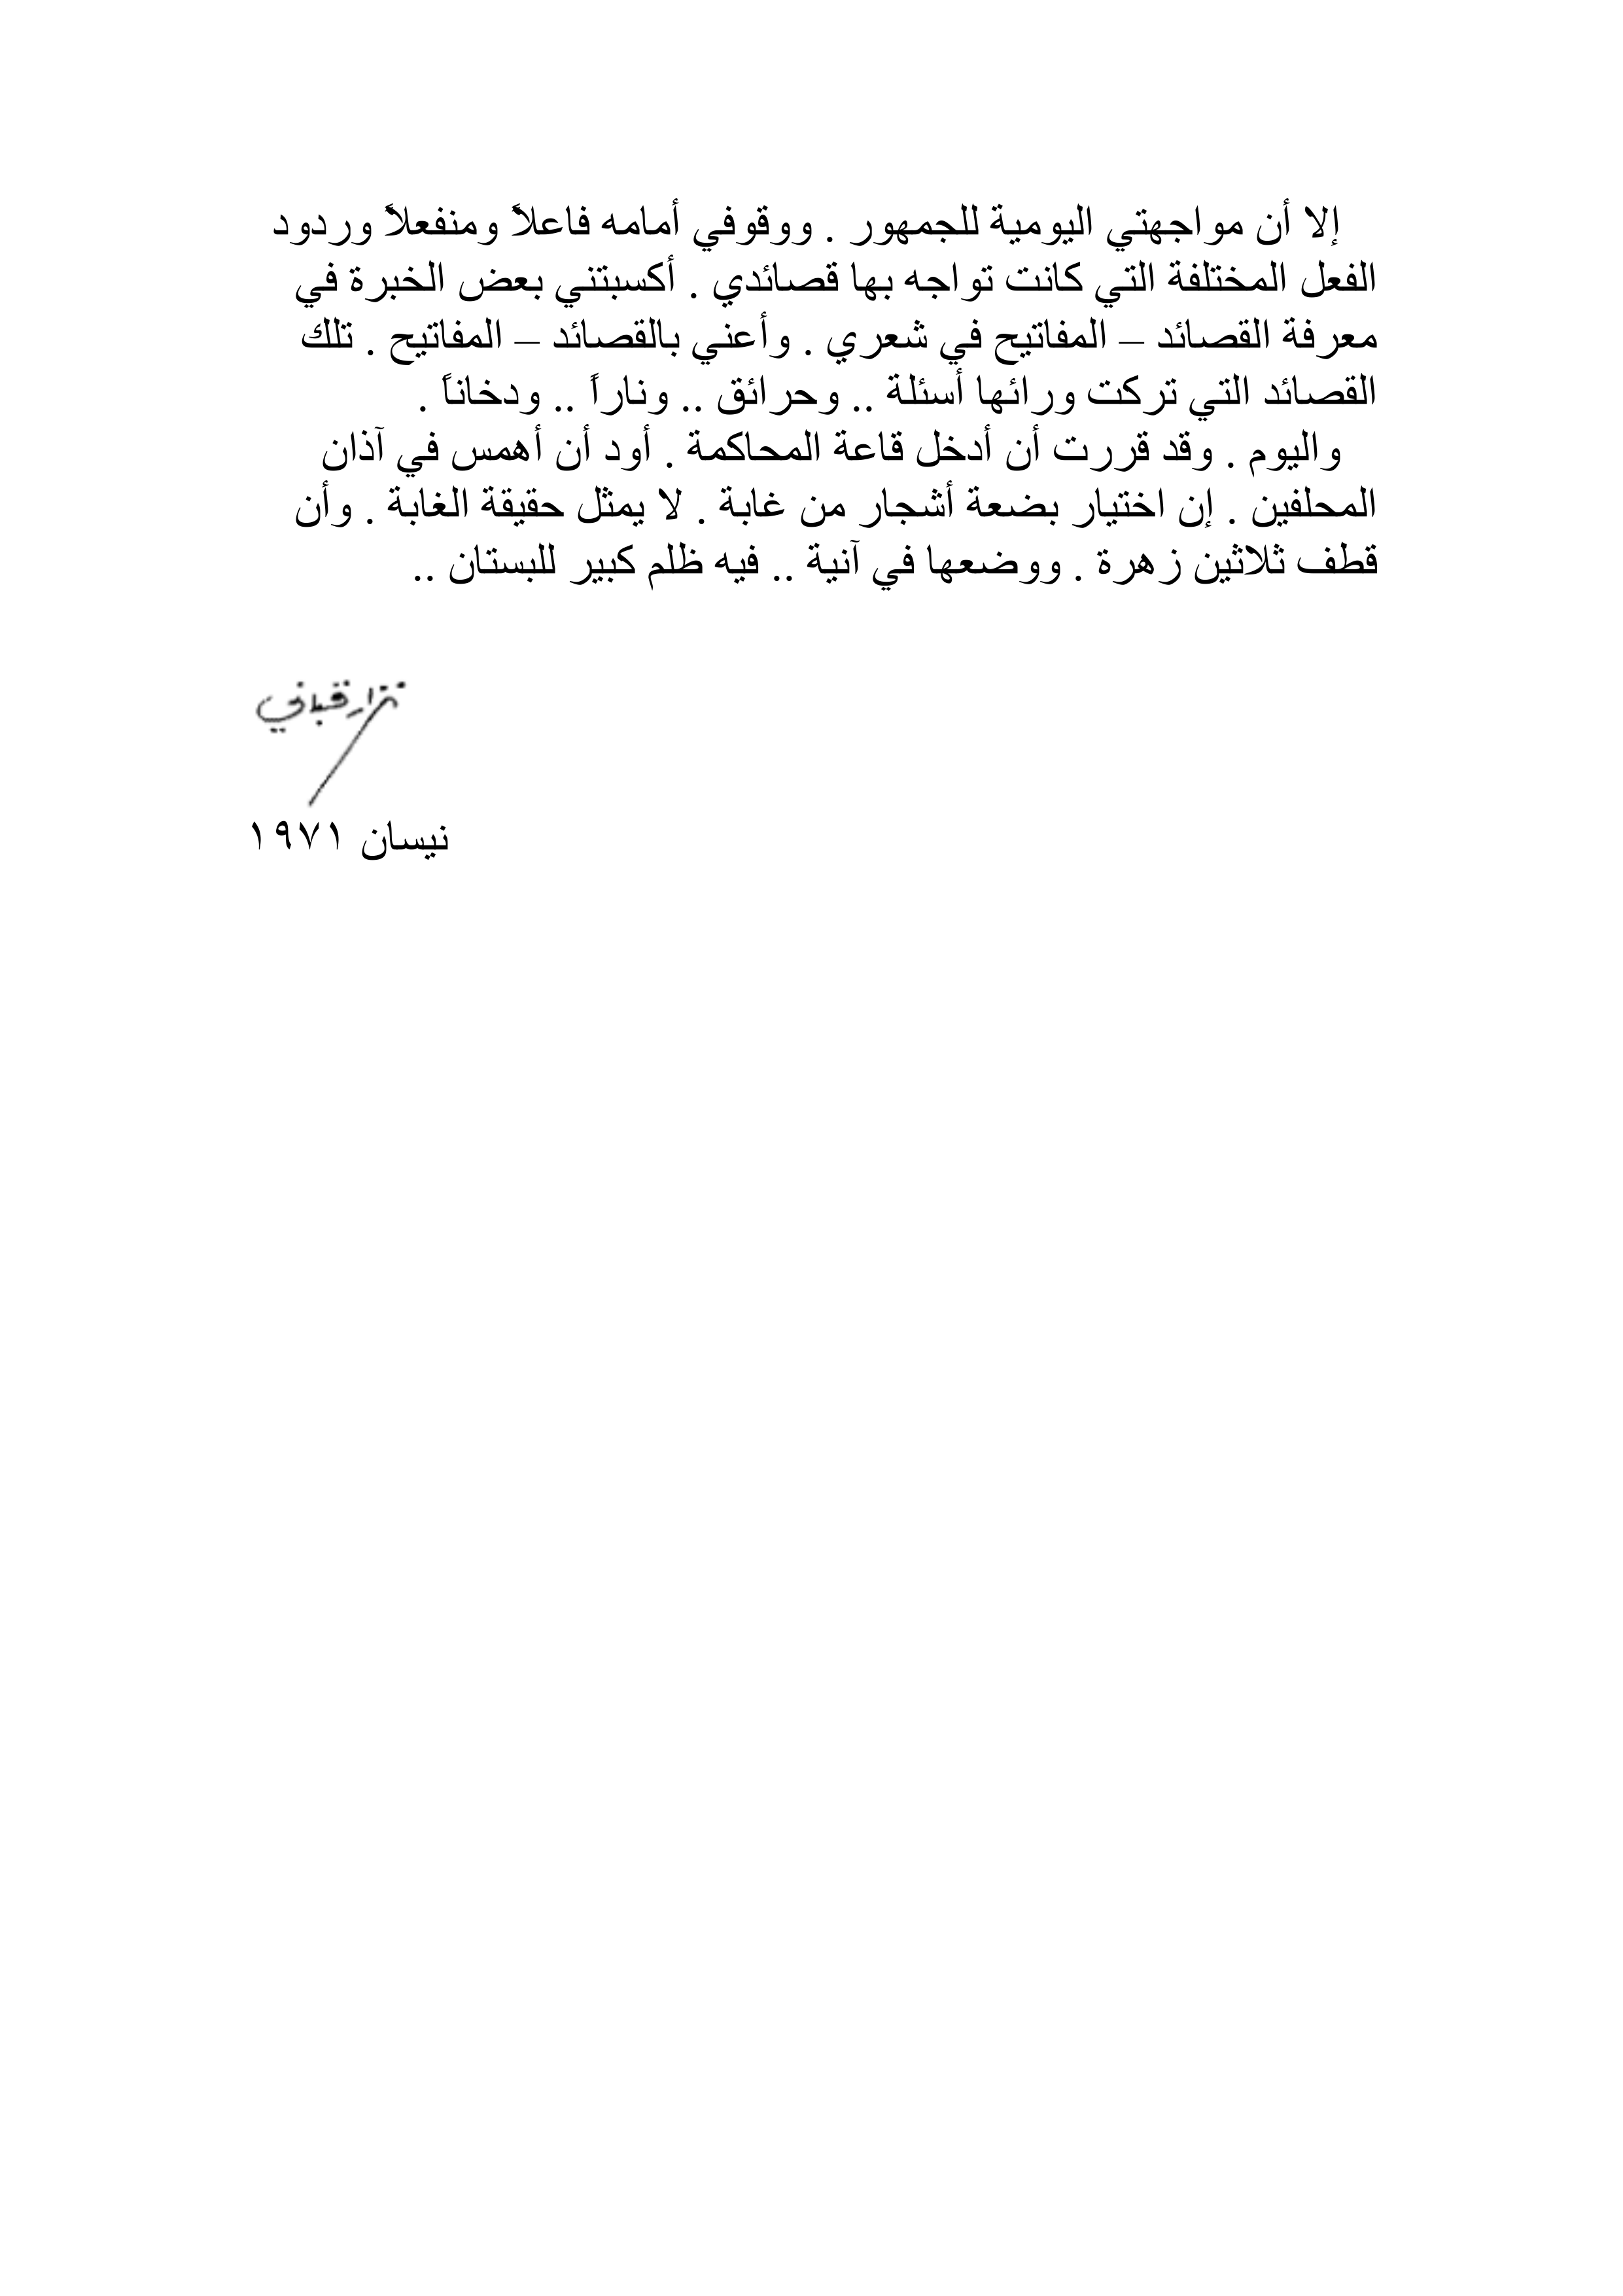 إلا أن مواجهتي اليومية للجمهور . ووقوفي أمامه فاعلاً ومنفعلاً وردود
الفعل المختلفة التي كانت تواجه بها قصائدي . أكسبتني بعض الخبرة في
معرفة القصائد – المفاتيح في شعري . وأعني بالقصائد – المفاتيح . تلك
القصائد التي تركت ورائها أسئلة .. وحرائق .. وناراً .. ودخاناً .
واليوم . وقد قررت أن أدخل قاعة المحاكمة . أود أن أهمس في آذان
المحلفين . إن اختيار بضعة أشجار من غابة . لا يمثل حقيقة الغابة . وأن
قطف ثلاثين زهرة . ووضعها في آنية .. فيه ظلم كبير للبستان ..
نزار قباني
نيسان ١٩٧١